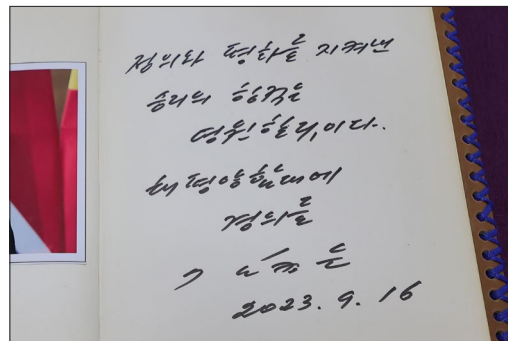 정의와 평화를 지켜낸
승리의 항적은
영원하리,이다.
태평양함대에
경의를
김정은
2023. 9. 16